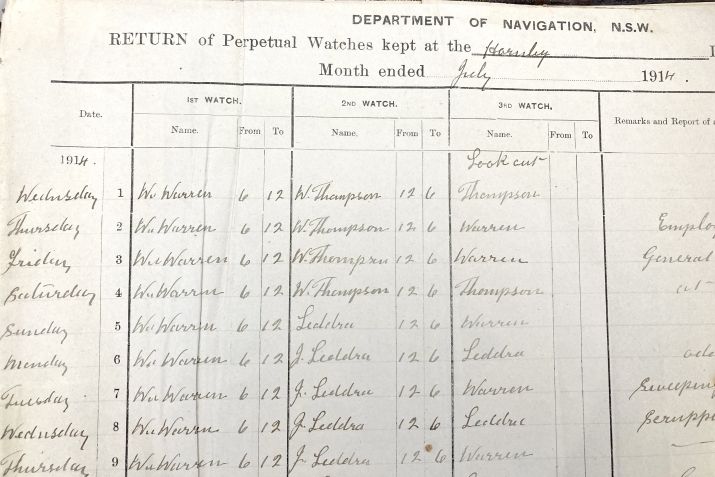 DEPARTMENT OF NAVIGATION, N.S.W.
RETURN of Perpetual Watches kept at the Hornby
Month ended July 1914.
Date. 1ST WATCH. 2ND WATCH. 3RD WATCH. Remarks and Report of
Name. From To Name. From To Name. From To
1914. Look out
Wednesday 1 Wm Warren 6 12 W. Thompson 12 6 Thompson
Thursday 2 Wm Warren 6 12 W. Thompson 12 6 Warren
Friday 3 Wm Warren 6 12 W. Thompson 12 6 Warren General
Saturday 4 Wm Warren 6 12 W. Thompson 12 6 Thompson at
Sunday 5 Wm Warren 6 12 Leddra 12 6 Warren
Monday 6 Wm Warren 6 12 J. Leddra 12 6 Leddra
Tuesday 7 Wm Warren 6 12 J. Leddra 12 6 Warren
Wednesday 8 Wm Warren 6 12 J. Leddra 12 6 Leddra
Thursday 9 Wm Warren 6 12 J. Leddra 12 6 Warren